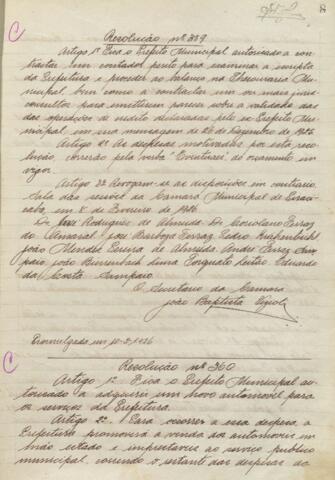 Resolução nº 359
Artigo 1º Fica o Prefeito Municipal autorizado a con-
tractar um contador perito para examinar a escripta
da Prefeitura e proceder ao balanço na Thesouraria Mu-
nicipal, bem como a contractar um ou mais juris-
consultos para emittirem parecer sobre a validade das
das operações de credito declaradas pelo ex Prefeito Mu-
nicipal em sua mensagem de de Dezembro de 1925.
Artigo 2º As despesas motivadas por esta reso-
lução, correrão pela verba "Eventuaes" do orçamento em
vigor.
Artigo 3º Revogam-se as disposições em contrario.
Sala das sessões da Camara Municipal de Piraci-
caba, em 8 de Fevereiro de 1926.
Dr. José Rodrigues de Almeida. Dr. Coriolano Ferraz
do Amaral. José Barboza Ferraz. Pedro Krahenbuhl
João Mendes Pereira de Almeida. André Ferraz Sam-
paio João Lima Torquato Leitão. Eduardo
da Costa Sampaio
O Secretario da Camara
João Baptista
Promulgada em 10-2-1926
Resolução nº 360
Artigo 1º Fica o Prefeito Municipal au-
torisado a adquirir um novo automovel para
os serviços da Prefeitura.
Artigo 2º Para occorrer a essa despesa a
Prefeitura promoverá a venda dos automoveis em
máo estado e imprestaveis ao serviço publico
municipal, correndo o restante das despesas ao